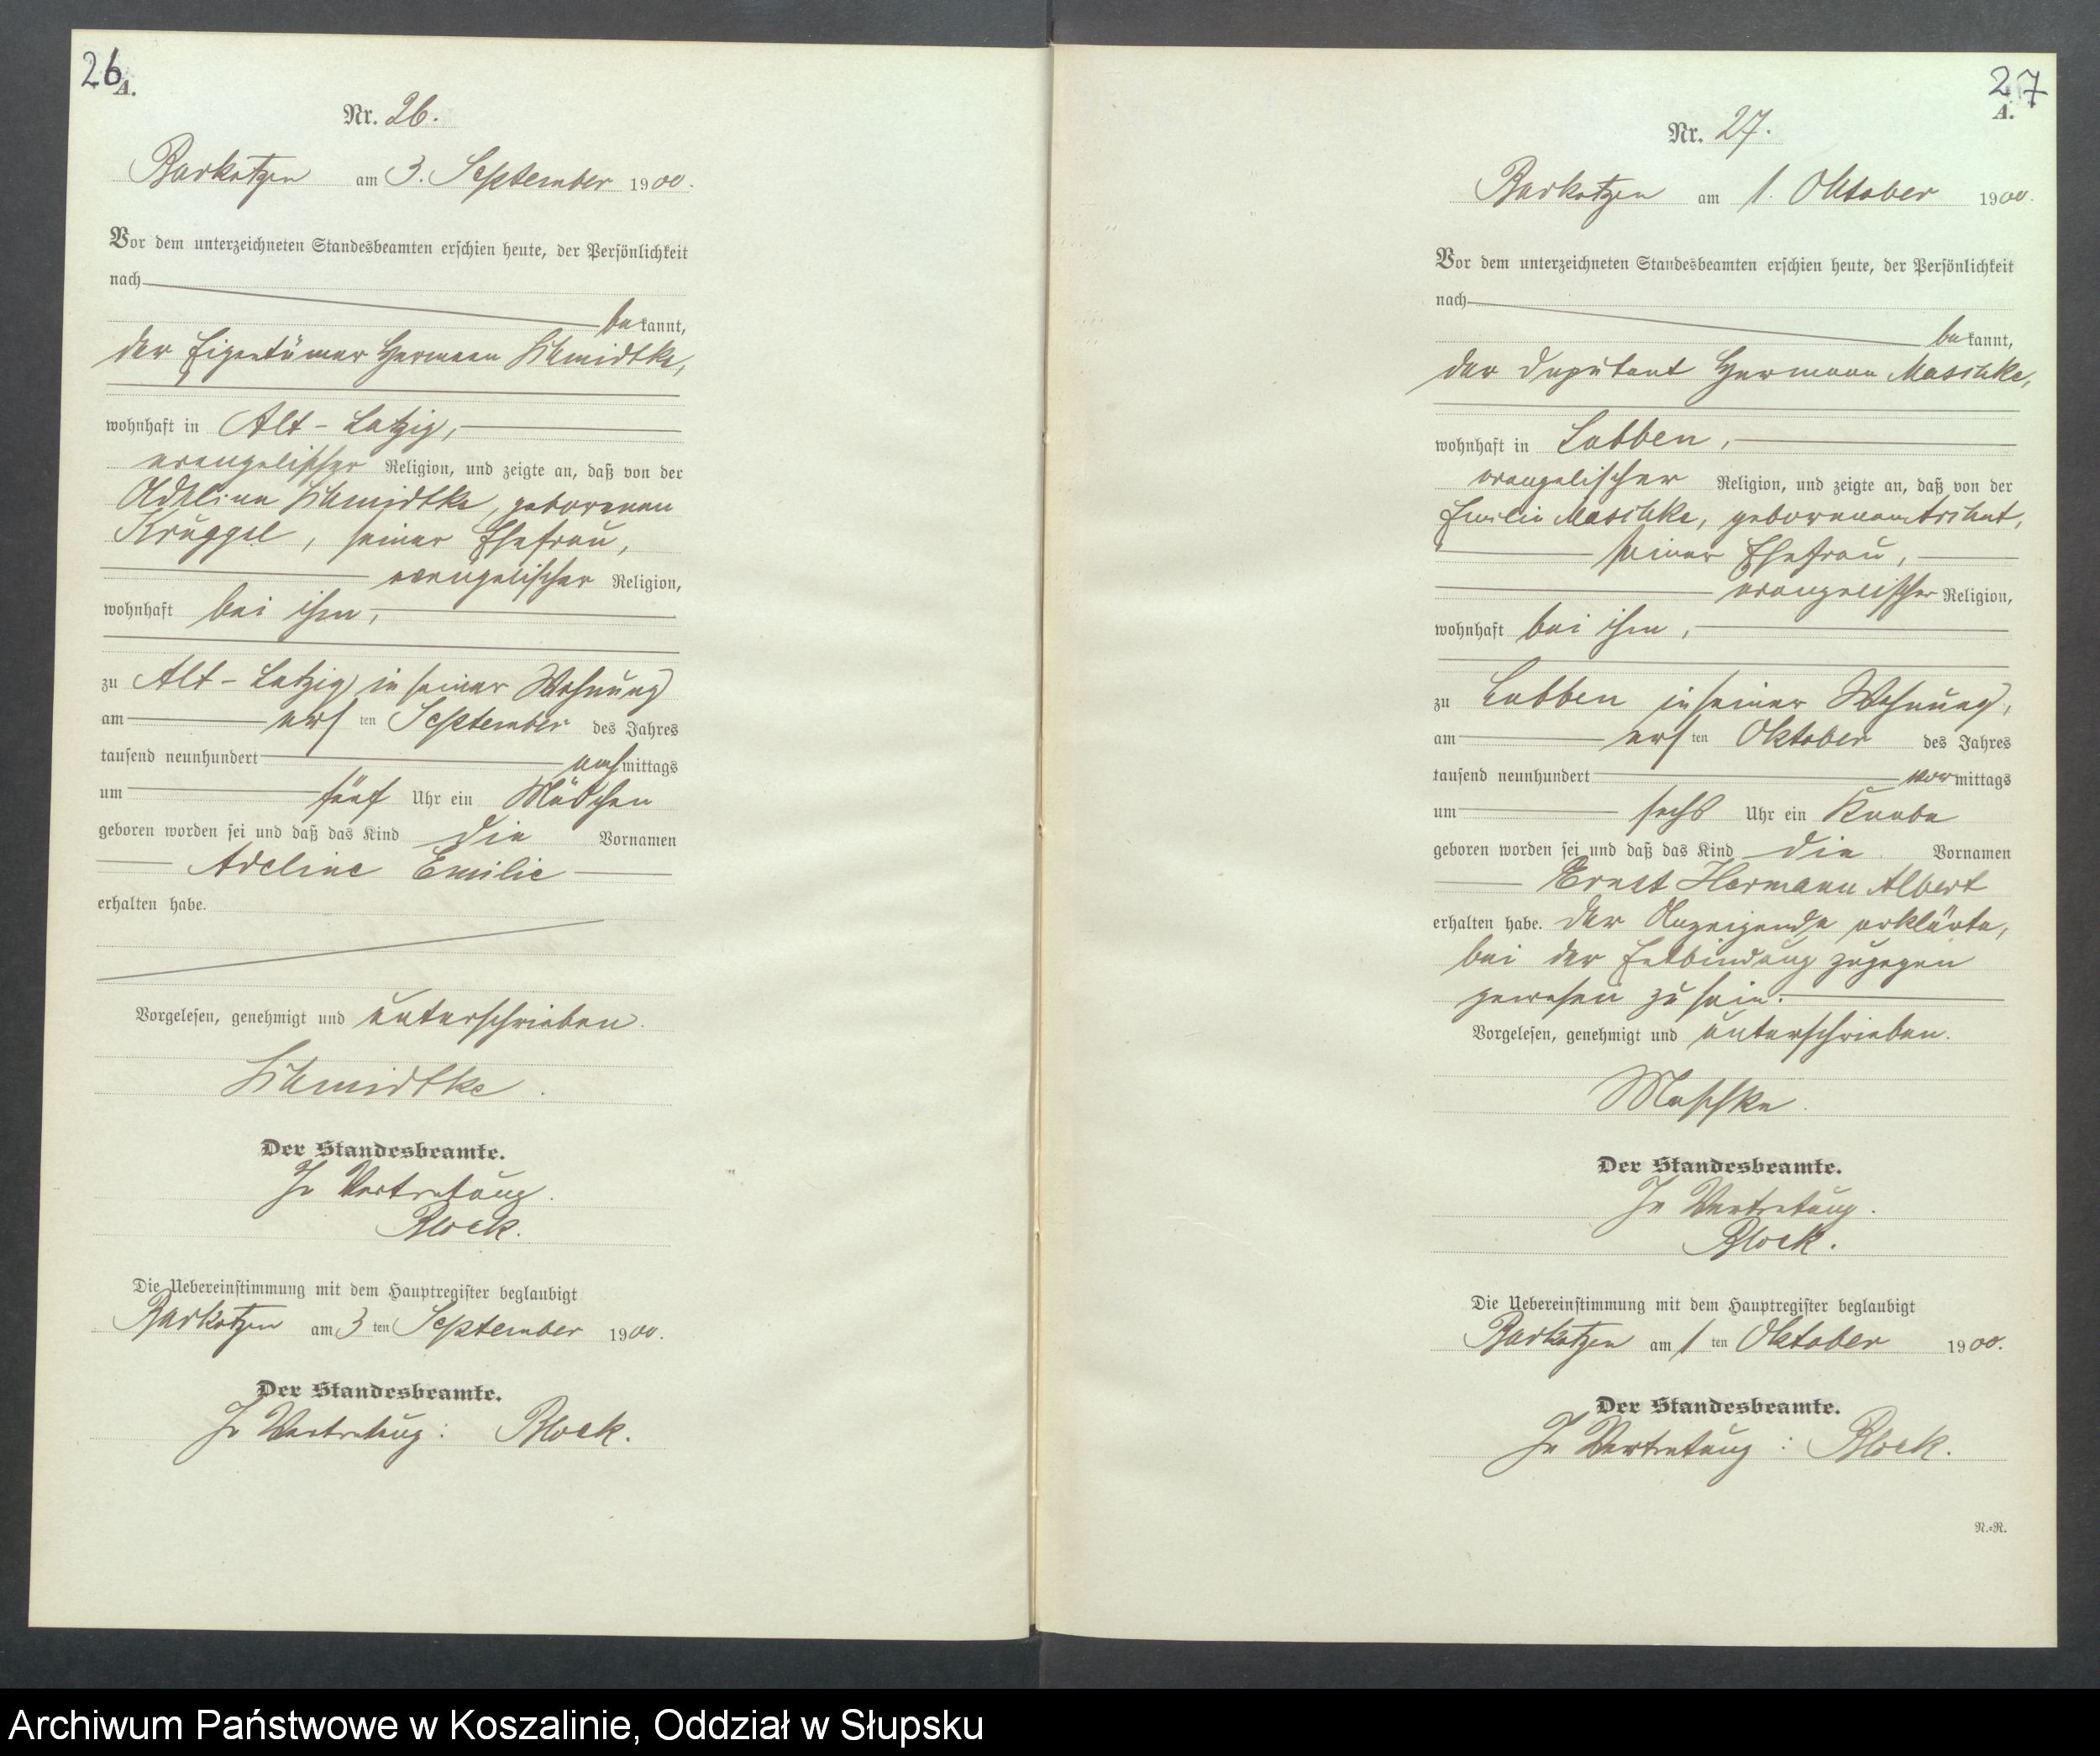 26
A.
Nr. 26.
Barkotzen am 3. September 1900.
Vor dem unterzeichneten Standesbeamten erschien heute, der Persönlichkeit
nach
bekannt,
der Eigentümer Hermann Schmidtke,
wohnhaft in Alt-Latzig,
evangelischer Religion, und zeigte an, daß von der
Adeline Schmidtke, geborenen
Krüggel, seiner Ehefrau,
evangelischer Religion,
wohnhaft bei ihm,
zu Alt-Latzig in seiner Wohnung
am ersten September des Jahres
tausend neunhundert nachmittags
um fünf Uhr ein Mädchen
geboren worden sei und daß das Kind die Vornamen
Adeline Emilie
erhalten habe.
Vorgelesen, genehmigt und unterschrieben.
Schmidtke.
Der Standesbeamte.
In Vertretung.
Block.
Die Uebereinstimmung mit dem Hauptregister beglaubigt
Barkotzen am 3ten September 1900.
Der Standesbeamte.
In Vertretung: Block.
27
A.
Nr. 27.
Barkotzen am 1. Oktober 1900.
Vor dem unterzeichneten Standesbeamten erschien heute, der Persönlichkeit
nach
bekannt,
der Deputant Hermann Maschke,
wohnhaft in Labben,
evangelischer Religion, und zeigte an, daß von der
Emilie Maschke, geborenen
seiner Ehefrau,
evangelischer Religion,
wohnhaft bei ihm,
zu Labben in seiner Wohnung,
am ersten Oktober des Jahres
tausend neunhundert vormittags
um sechs Uhr ein Knabe
geboren worden sei und daß das Kind die Vornamen
Ernst Hermann Albert
erhalten habe. Der Anzeigende erklärte,
bei der Entbindung zugegen
gewesen zu sein.
Vorgelesen, genehmigt und unterschrieben.
Maschke.
Der Standesbeamte.
In Vertretung.
Block.
Die Uebereinstimmung mit dem Hauptregister beglaubigt
Barkotzen am 1ten Oktober 1900.
Der Standesbeamte.
In Vertretung: Block.
N.-R.
Archiwum Państwowe w Koszalinie, Oddział w Słupsku